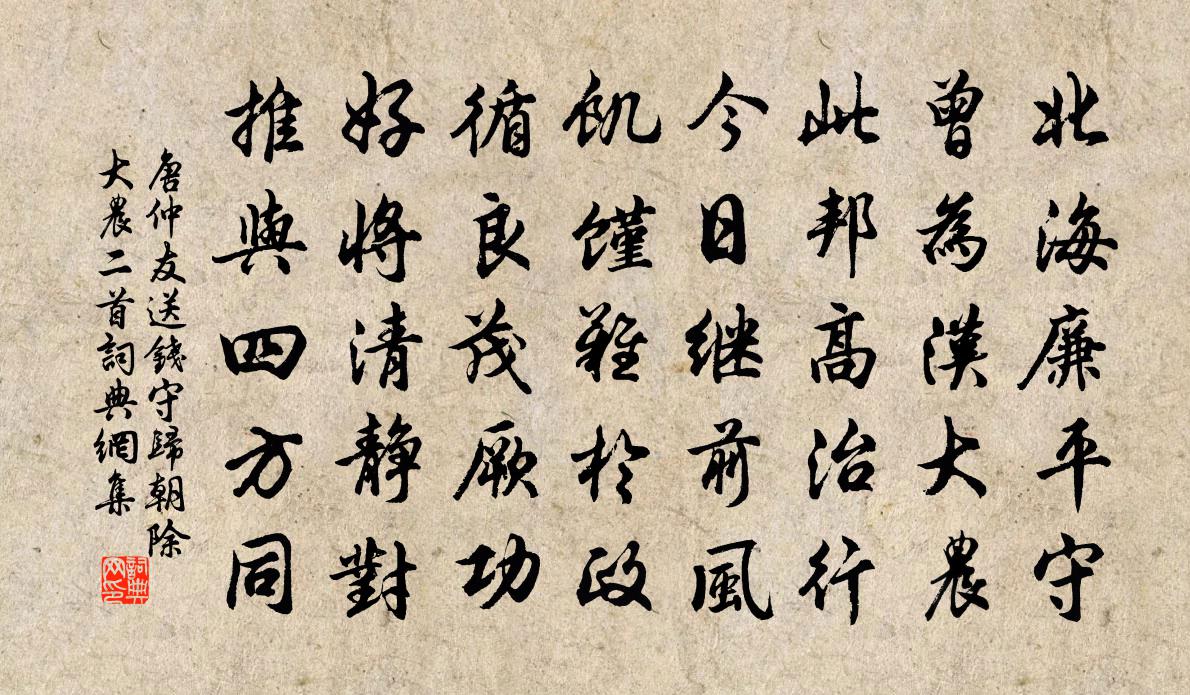 北海廉平守
曾為漢大農
此邦高治行
今日继前風
飢饉難於政
循良茂厥功
好將清静對
推與四方同
唐仲友送錢守歸朝除
大農二首詞典網集
詞典
网印